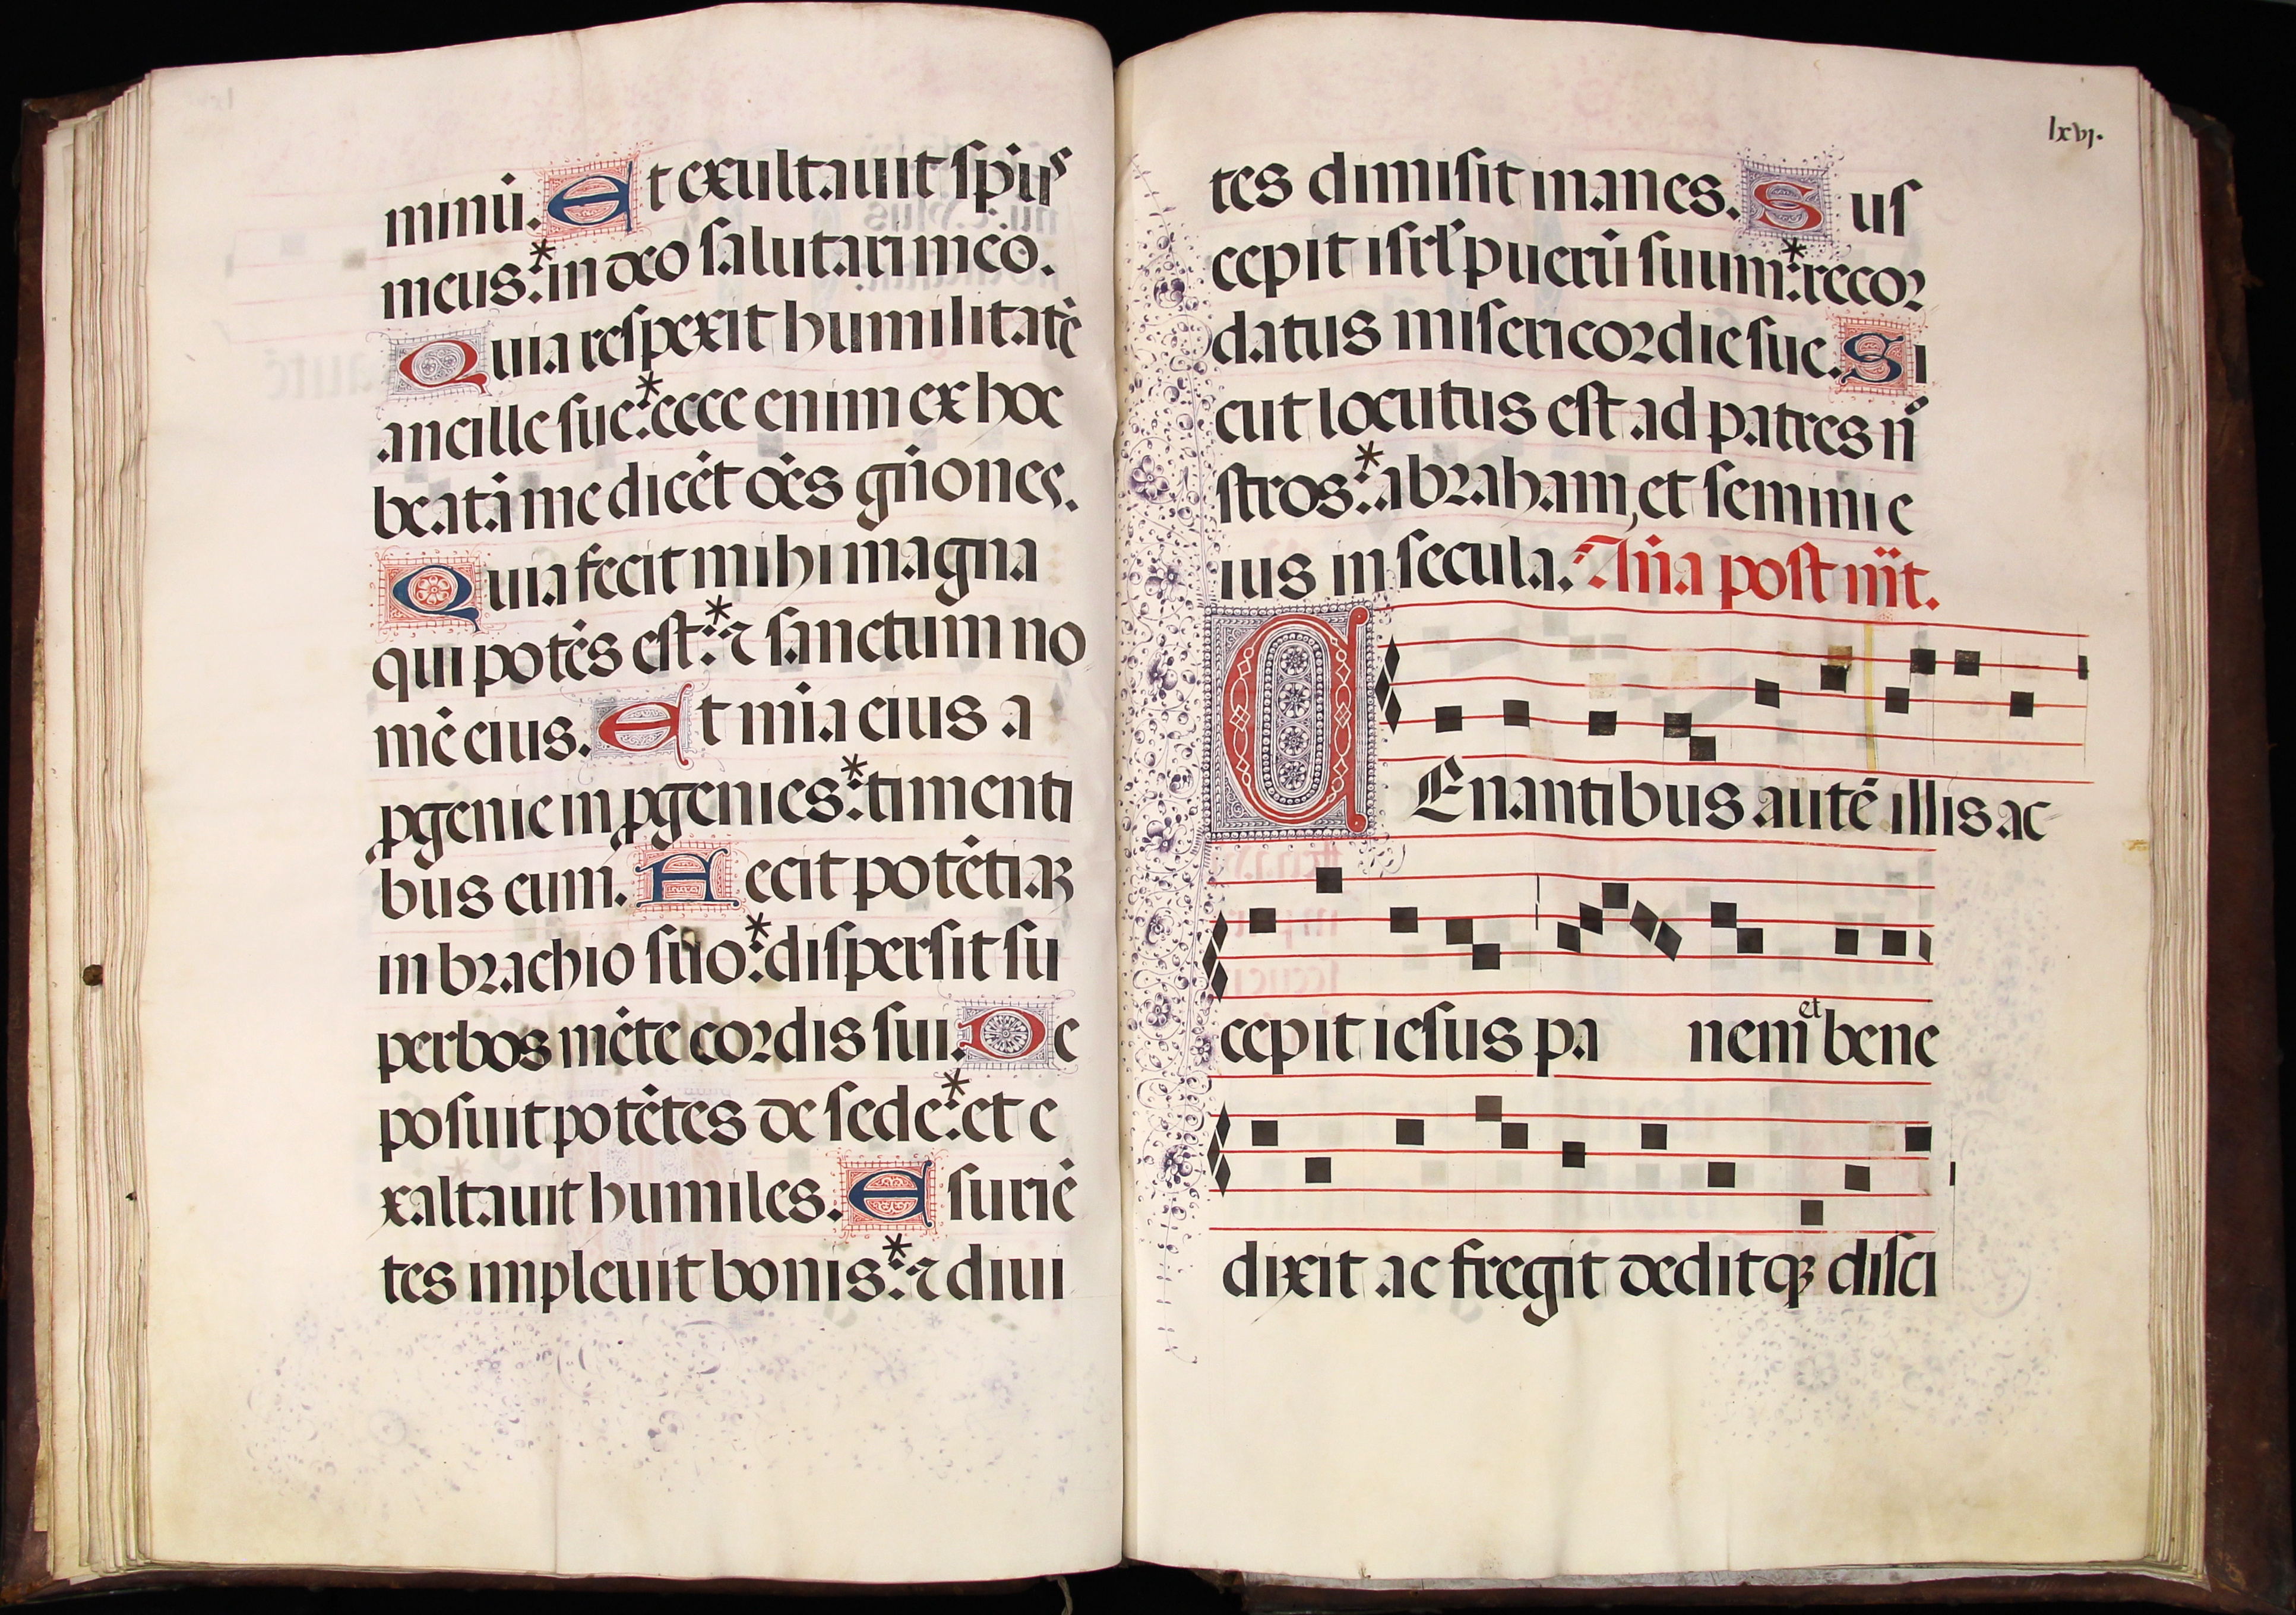 minū. Et exultauit spūs
meus:* in deo salutari meo.
Quia respexit humilitatē
ancille sue:* ecce enim ex hoc
beatā me dicēt oēs gn̄iones.
Quia fecit mihi magna
qui potēs est:* ⁊ sanctum no
mē eius. Et mīa eius a
ꝓgenie in ꝓgenies:* timenti
bus eum. Fecit potētiaꝫ
in brachio suo:* dispersit su
perbos mēte cordis sui. De
posuit potētes de sede:* et e
xaltauit humiles. Esuriē
tes impleuit bonis:* ⁊ diui
lxvj.
tes dimisit inanes. Sus
cepit isrl̄ puerū suum:* recor
datus misericordie sue. Si
cut locutus est ad patres n̄
stros:* abraham, et semini e
ius in secula. An̄a post m̄t.
CEnantibus autē illis ac
cepit iesus pa nem et bene
dixit ac fregit deditqꝫ disci